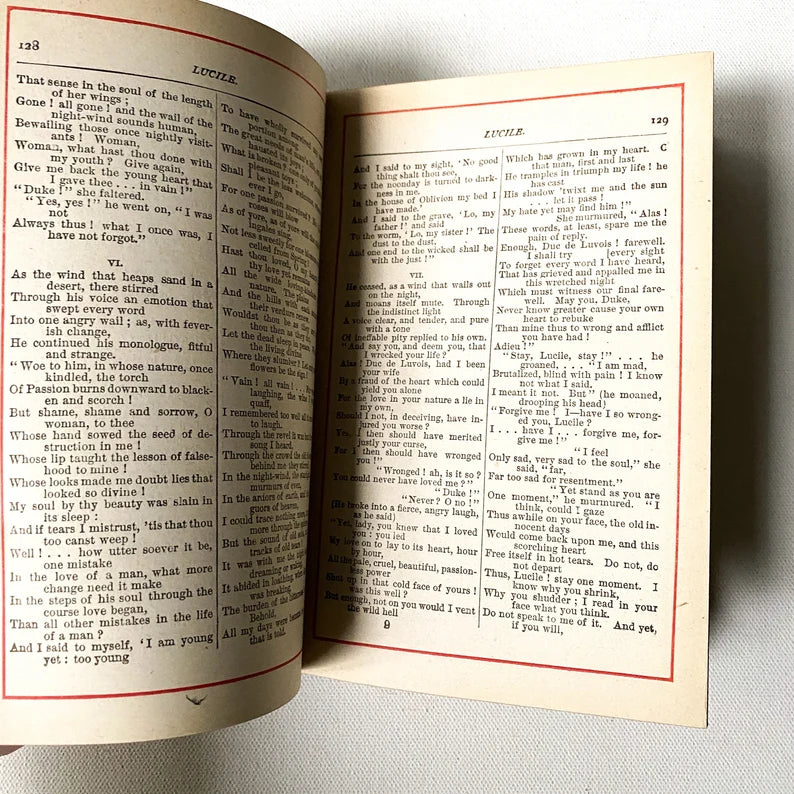 128
LUCILE.
That sense in the soul of the length
of her wings ;
Gone ! all gone ! and the wail of the
night-wind sounds human,
Bewailing those once nightly visit-
ants ! Woman,
Woman, what hast thou done with
my youth ? Give again,
Give me back the young heart that
I gave thee . . . in vain !"
"Duke !" she faltered.
"Yes, yes !" he went on, "I was
not
Always thus ! what I once was, I
have not forgot."
VI.
As the wind that heaps sand in a
desert, there stirred
Through his voice an emotion that
swept every word
Into one angry wail ; as, with fever-
ish change,
He continued his monologue, fitful
and strange.
"Woe to him, in whose nature, once
kindled, the torch
Of Passion burns downward to black-
en and scorch !
But shame, shame and sorrow, O
woman, to thee
Whose hand sowed the seed of de-
struction in me !
Whose lip taught the lesson of false-
hood to mine !
Whose looks made me doubt lies that
looked so divine !
My soul by thy beauty was slain in
its sleep :
And if tears I mistrust, 'tis that thou
too canst weep !
Well ! . . . how utter soever it be,
one mistake
In the love of a man, what more
change need it make
In the steps of his soul through the
course love began,
Than all other mistakes in the life
of a man ?
And I said to myself, 'I am young
yet : too young
To have wholly survived
portion among
The great needs of
hausted its
What is broken ?
pleasant
Shall I be the least
ever I go
For one passion survived ?
roses will blow
As of yore, as of yore will
ingales sing,
Not less sweetly for
celled from Spring !
Hast thou loved, O my
thy love yet
All the wide loving-
nature. The plains
And the hills with each
their verdure
Wouldst thou be as
thou then as they do,
Let the dead sleep in peace.
the living divine
Where they slumber ? Let
flowers be the sign !
"Vain ! all vain ! . . .
laughing, the wine
quaff,
I remembered too well all
to laugh.
Through the revel it was but
song I heard,
Through the crowd the old
behind me they stirred.
In the night-wind, the
murmurs of even,
In the ardors of earth, and
guors of heaven,
I could trace nothing
more through the
But the sound of old
tracks of old
It was with me the night
dreaming or waking,
It abided in loathing, when
was breaking,
The burden of the bitterness
Behold,
All my days were become
that is told.
129
LUCILE.
And I said to my sight, 'No good
thing shalt thou see,
For the noonday is turned to dark-
ness in me.
In the house of Oblivion my bed I
have made.'
And I said to the grave, 'Lo, my
father !' and said
To the worm, 'Lo, my sister !' The
dust to the dust,
And one end to the wicked shall be
with the just !"
VII.
He ceased, as a wind that wails out
on the night,
And moans itself mute. Through
the indistinct light
A voice clear, and tender, and pure
with a tone
Of ineffable pity replied to his own.
"And say you, and deem you, that
I wrecked your life ?
Alas ! Duc de Luvois, had I been
your wife
By a fraud of the heart which could
yield you alone
For the love in your nature a lie in
my own,
Should I not, in deceiving, have in-
jured you worse ?
Yes, I then should have merited
justly your curse,
For I then should have wronged
you !"
"Wronged ! ah, is it so ?
You could never have loved me ?"
"Duke !"
"Never ? O no !"
(He broke into a fierce, angry laugh,
as he said)
"Yet, lady, you knew that I loved
you : you led
My love on to lay to its heart, hour
by hour,
All the pale, cruel, beautiful, passion-
less power
Shut up in that cold face of yours !
was this well ?
But enough, not on you would I vent
the wild hell
9
Which has grown in my heart. C
that man, first and last
He tramples in triumph my life ! he
has cast
His shadow 'twixt me and the sun
. . . let it pass !
My hate yet may find him !"
She murmured, "Alas !
These words, at least, spare me the
pain of reply.
Enough, Duc de Luvois ! farewell.
I shall try [every sight
To forget every word I have heard,
That has grieved and appalled me in
this wretched night
Which must witness our final fare-
well. May you, Duke,
Never know greater cause your own
heart to rebuke
Than mine thus to wrong and afflict
you have had !
Adieu !"
"Stay, Lucile, stay !" . . . he
groaned, . . . "I am mad,
Brutalized, blind with pain ! I know
not what I said.
I meant it not. But" (he moaned,
drooping his head)
"Forgive me ! I—have I so wrong-
ed you, Lucile ?
I . . . have I . . . forgive me, for-
give me !"
"I feel
Only sad, very sad to the soul," she
said, "far,
Far too sad for resentment."
"Yet stand as you are
One moment," he murmured. "I
think, could I gaze
Thus awhile on your face, the old in-
nocent days
Would come back upon me, and this
scorching heart
Free itself in hot tears. Do not, do
not depart
Thus, Lucile ! stay one moment. I
know why you shrink,
Why you shudder ; I read in your
face what you think.
Do not speak to me of it. And yet,
if you will,